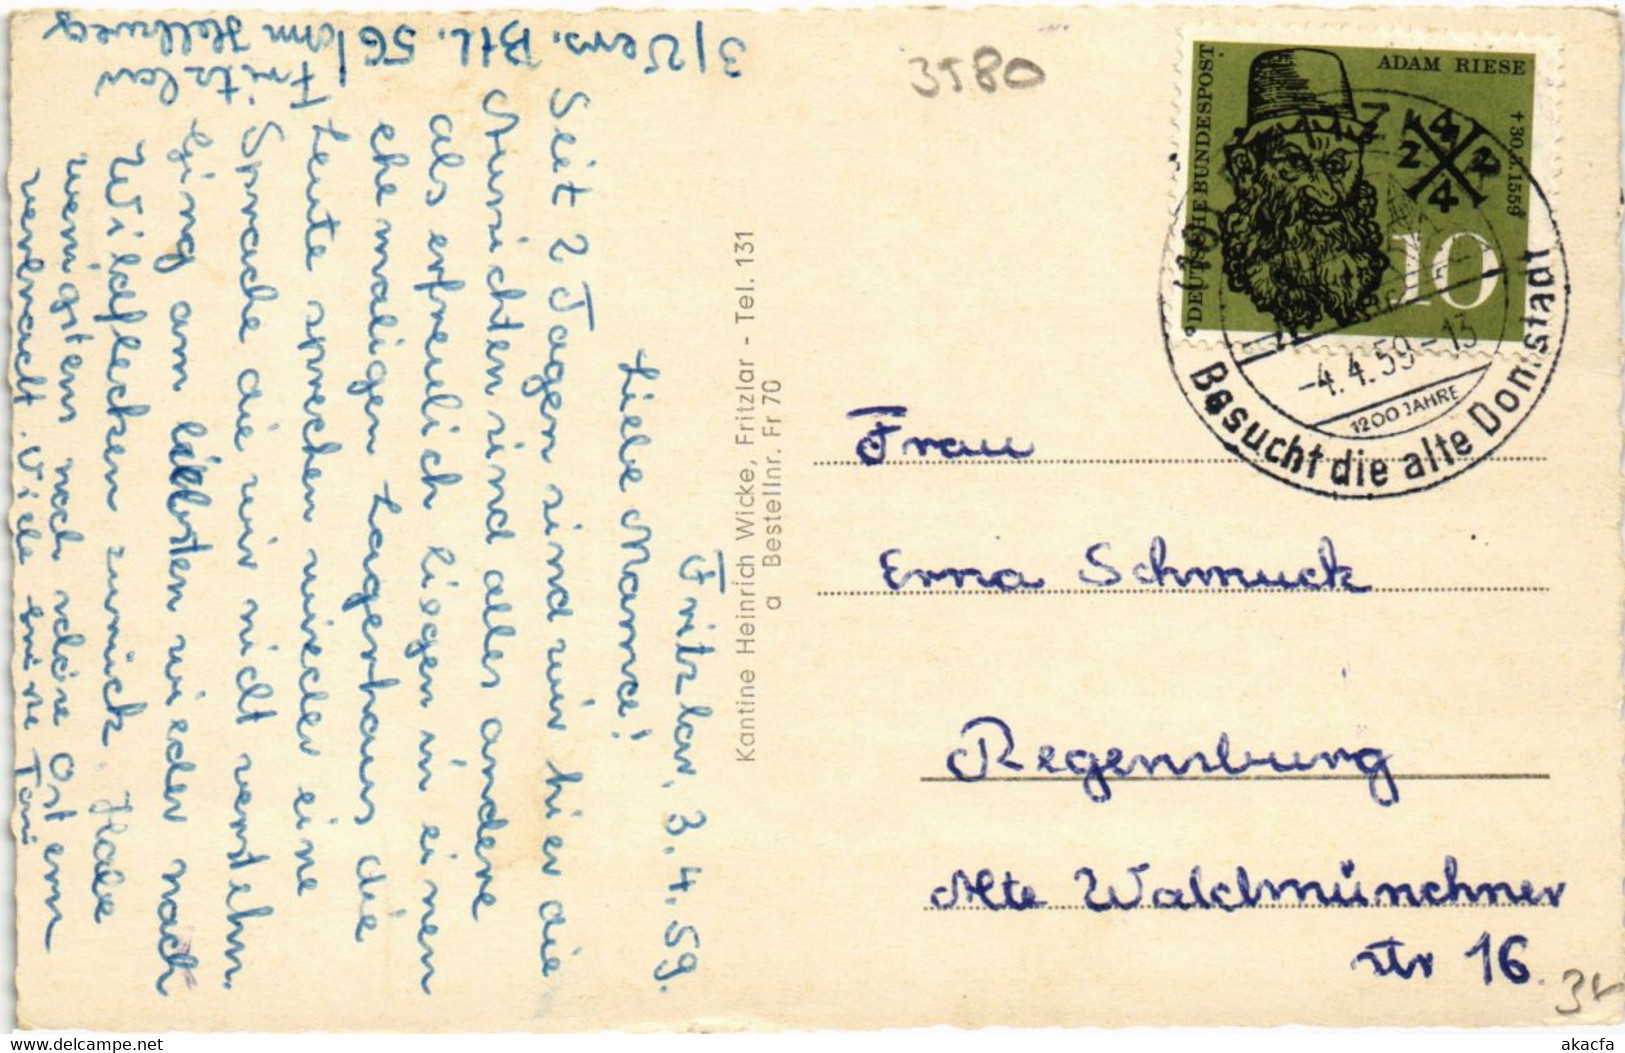 3/Vers. Btl. 56
Am Hellweg
Fritzlar
Fritzlar, 3.4.59.
Liebe Mama!
Seit 2 Tagen sind wir hier die
Aussichten sind alles andere
als erfreulich liegen in einen
ehemaligen Lagerhaus die
Leute sprechen wieder eine
Sprache die wir nicht verstehn.
Ging am liebsten wieder nach
Wildflecken zurück. Habe
wenigstens noch schöne Ostern
verbracht. Viele Grüße Toni
Kantine Heinrich Wicke, Fritzlar - Tel. 131
a Bestellnr. Fr 70
3580
DEUTSCHE BUNDESPOST
ADAM RIESE
† 30.3.1559
2 4 2 4
10
FRITZLAR
-4.4.59-13
1200 JAHRE
Besucht die alte Domstadt
Frau
Erna Schmuck
Regensburg
Alte Waldmünchner
str 16.
akacfa